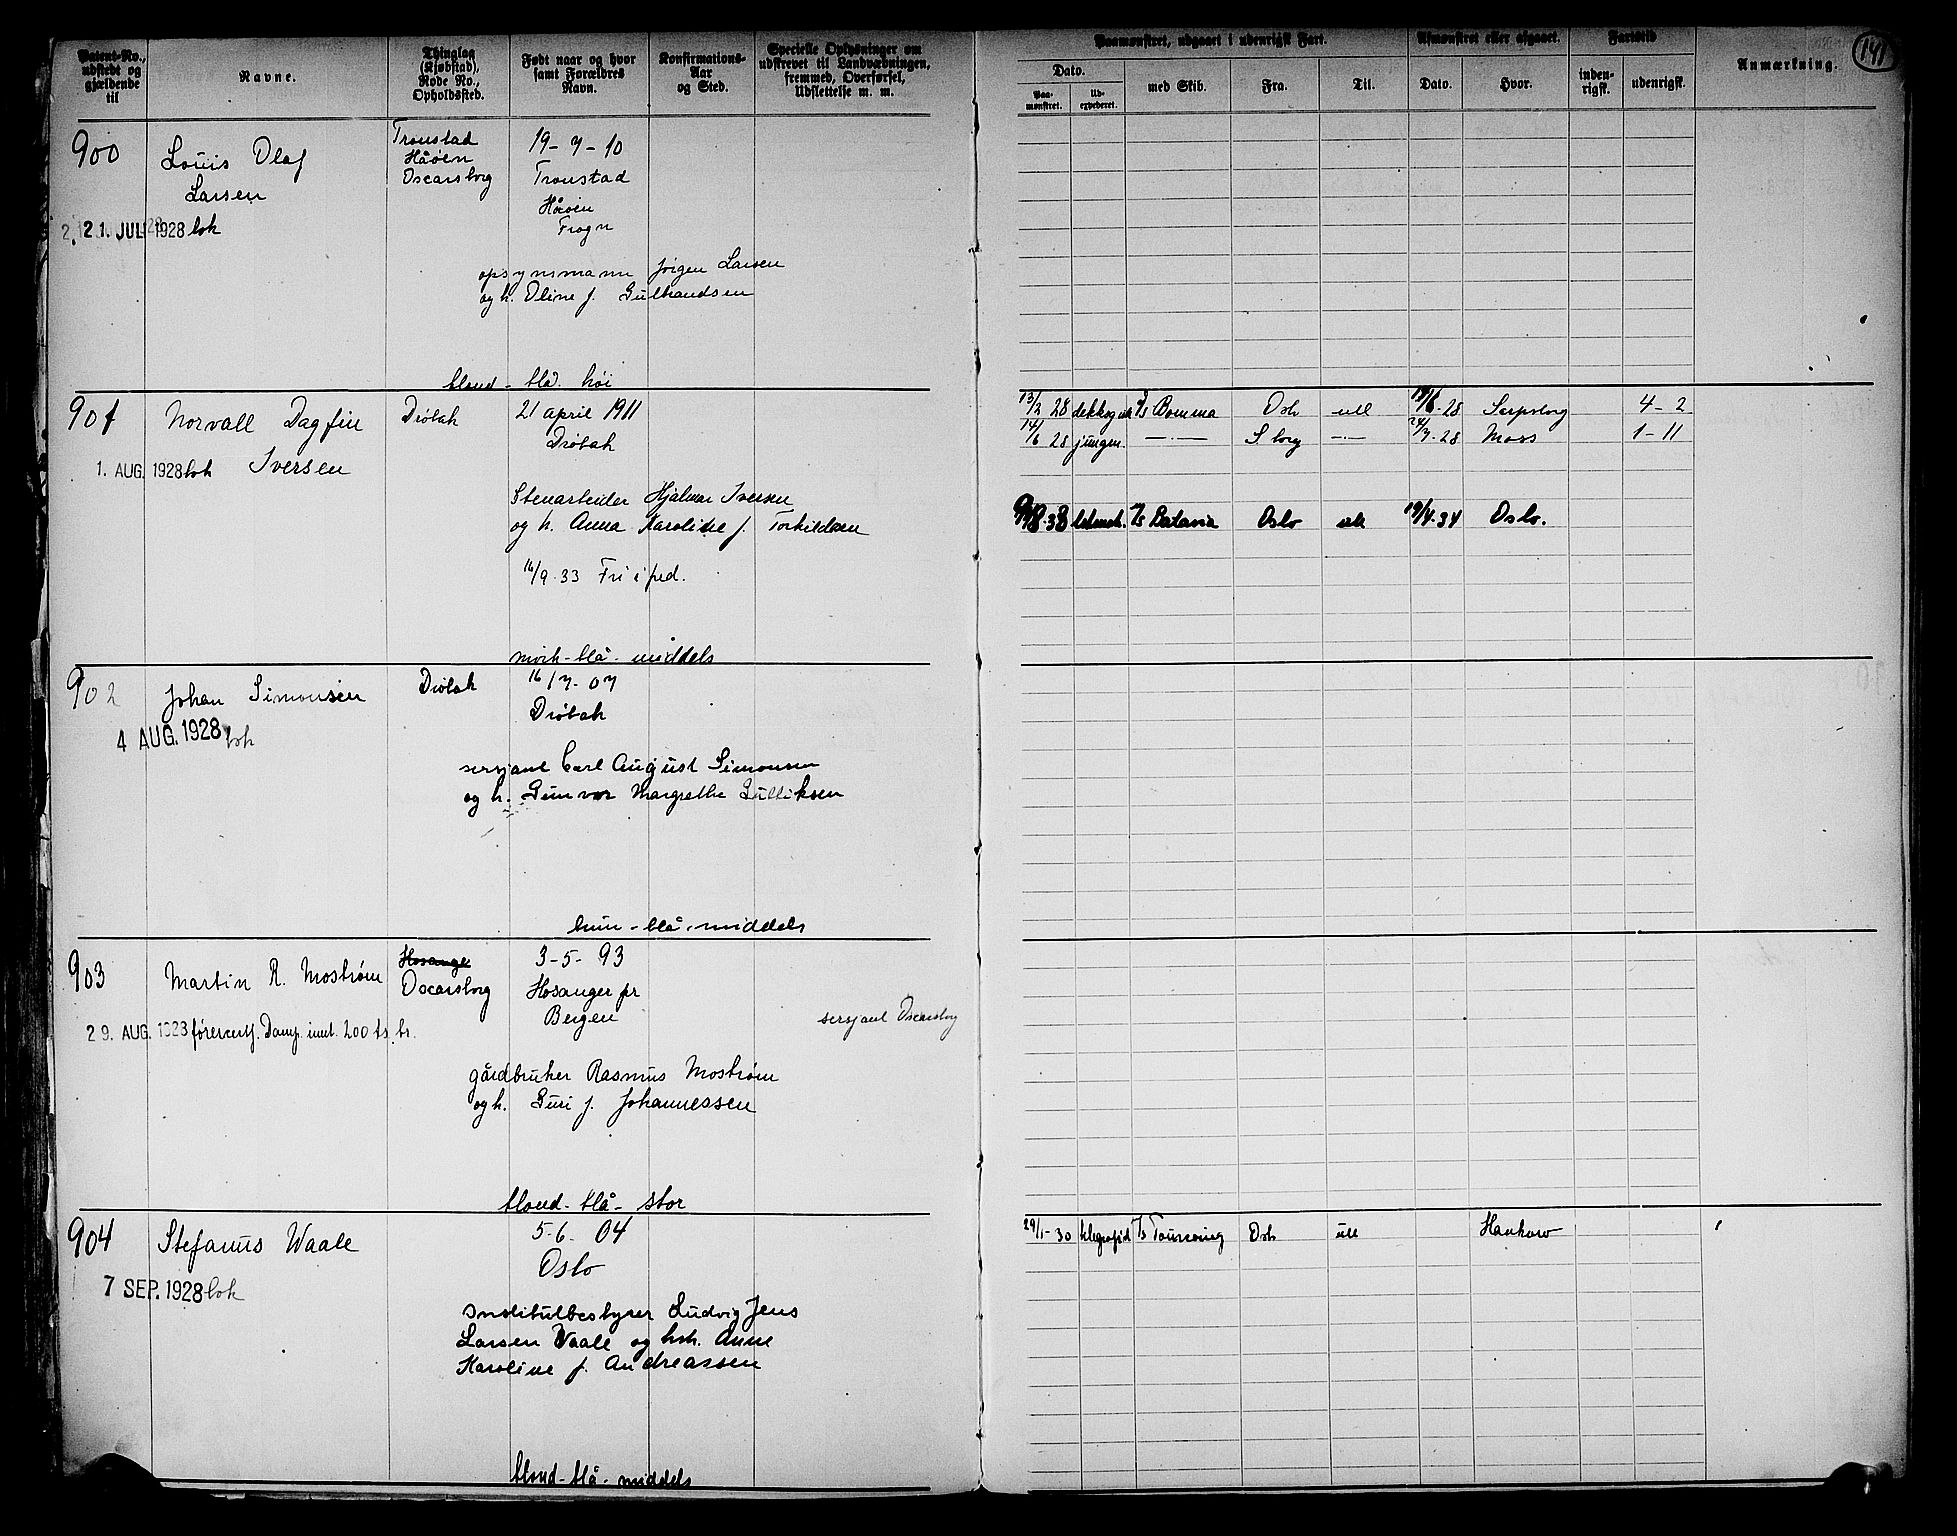 Patent-No., udstedt og gjældende til
Navne.
Thinglag (Kjøbstad), Rode No., Opholdssted.
Født naar og hvor samt Forældres Navn.
Konfirmations-Aar og Sted.
Specielle Oplysninger om udskrevet til Landværbningen, fremmed, Overførsel, Udslettelse m. m.
Paamønstret, udgaaet i udenrigsk Fart.
Afmønstret eller afgaaet.
Fartstid
Anmærkning.
141
Dato.
Paa-mønstret.
Ud-expederet.
med Skib.
Fra.
Til.
Dato.
Hvor.
inden-rigsk.
udenrigsk.
900
Louis Olaf
Larsen
21. JULI 1928 lok
Tronstad
Håøen
Oscarsborg
19-7-10
Tronstad
Håøen
Frogn
opsynsmann Jørgen Larsen
og h. Oline f. Gulbrandsen
blond - blå. høi
901
Norvall Dagfin
Iversen
1. AUG. 1928 lok
Drøbak
21 april 1911
Drøbak
Stenarbeider Hjalmar Iversen
og h. Anna Karoline f. Torkildsen
16/9.33 Fri i fred.
mørk - blå - middels
13/2 28 dekksgut Bomma Oslo utl 14/6-28 Sarpsborg 4-2
14/6 28 jungm. —·— S borg —·— 24/7-28 Moss 1-11
Batavia Oslo utl 19/4.34 Oslo.
902
Johan Simonsen
4 AUG. 1928 lok
Drøbak
16/7-07
Drøbak
sersjant Carl August Simonsen
og h. Gunvor Margrethe Gulliksen
brun - blå - middels
903
Martin R. Mostrøm
29. AUG. 1928 førercertf. Damp. inntil 200 ts. br.
Hosanger
Oscarsborg
3-5-93
Hosanger pr
Bergen
sersjant Oscarsborg
gårdbruker Rasmus Mostrøm
og h. Guri f. Johannessen
blond - blå - stor
904
Stefanus Waale
7 SEP. 1928 lok
5-6-04
Oslo
Institutbestyrer Ludvig Jens
Larsen Waale og hsh. Anne
Karoline f. Andreassen
blond - blå - middels
29/1-30 Oslo utl Hankow